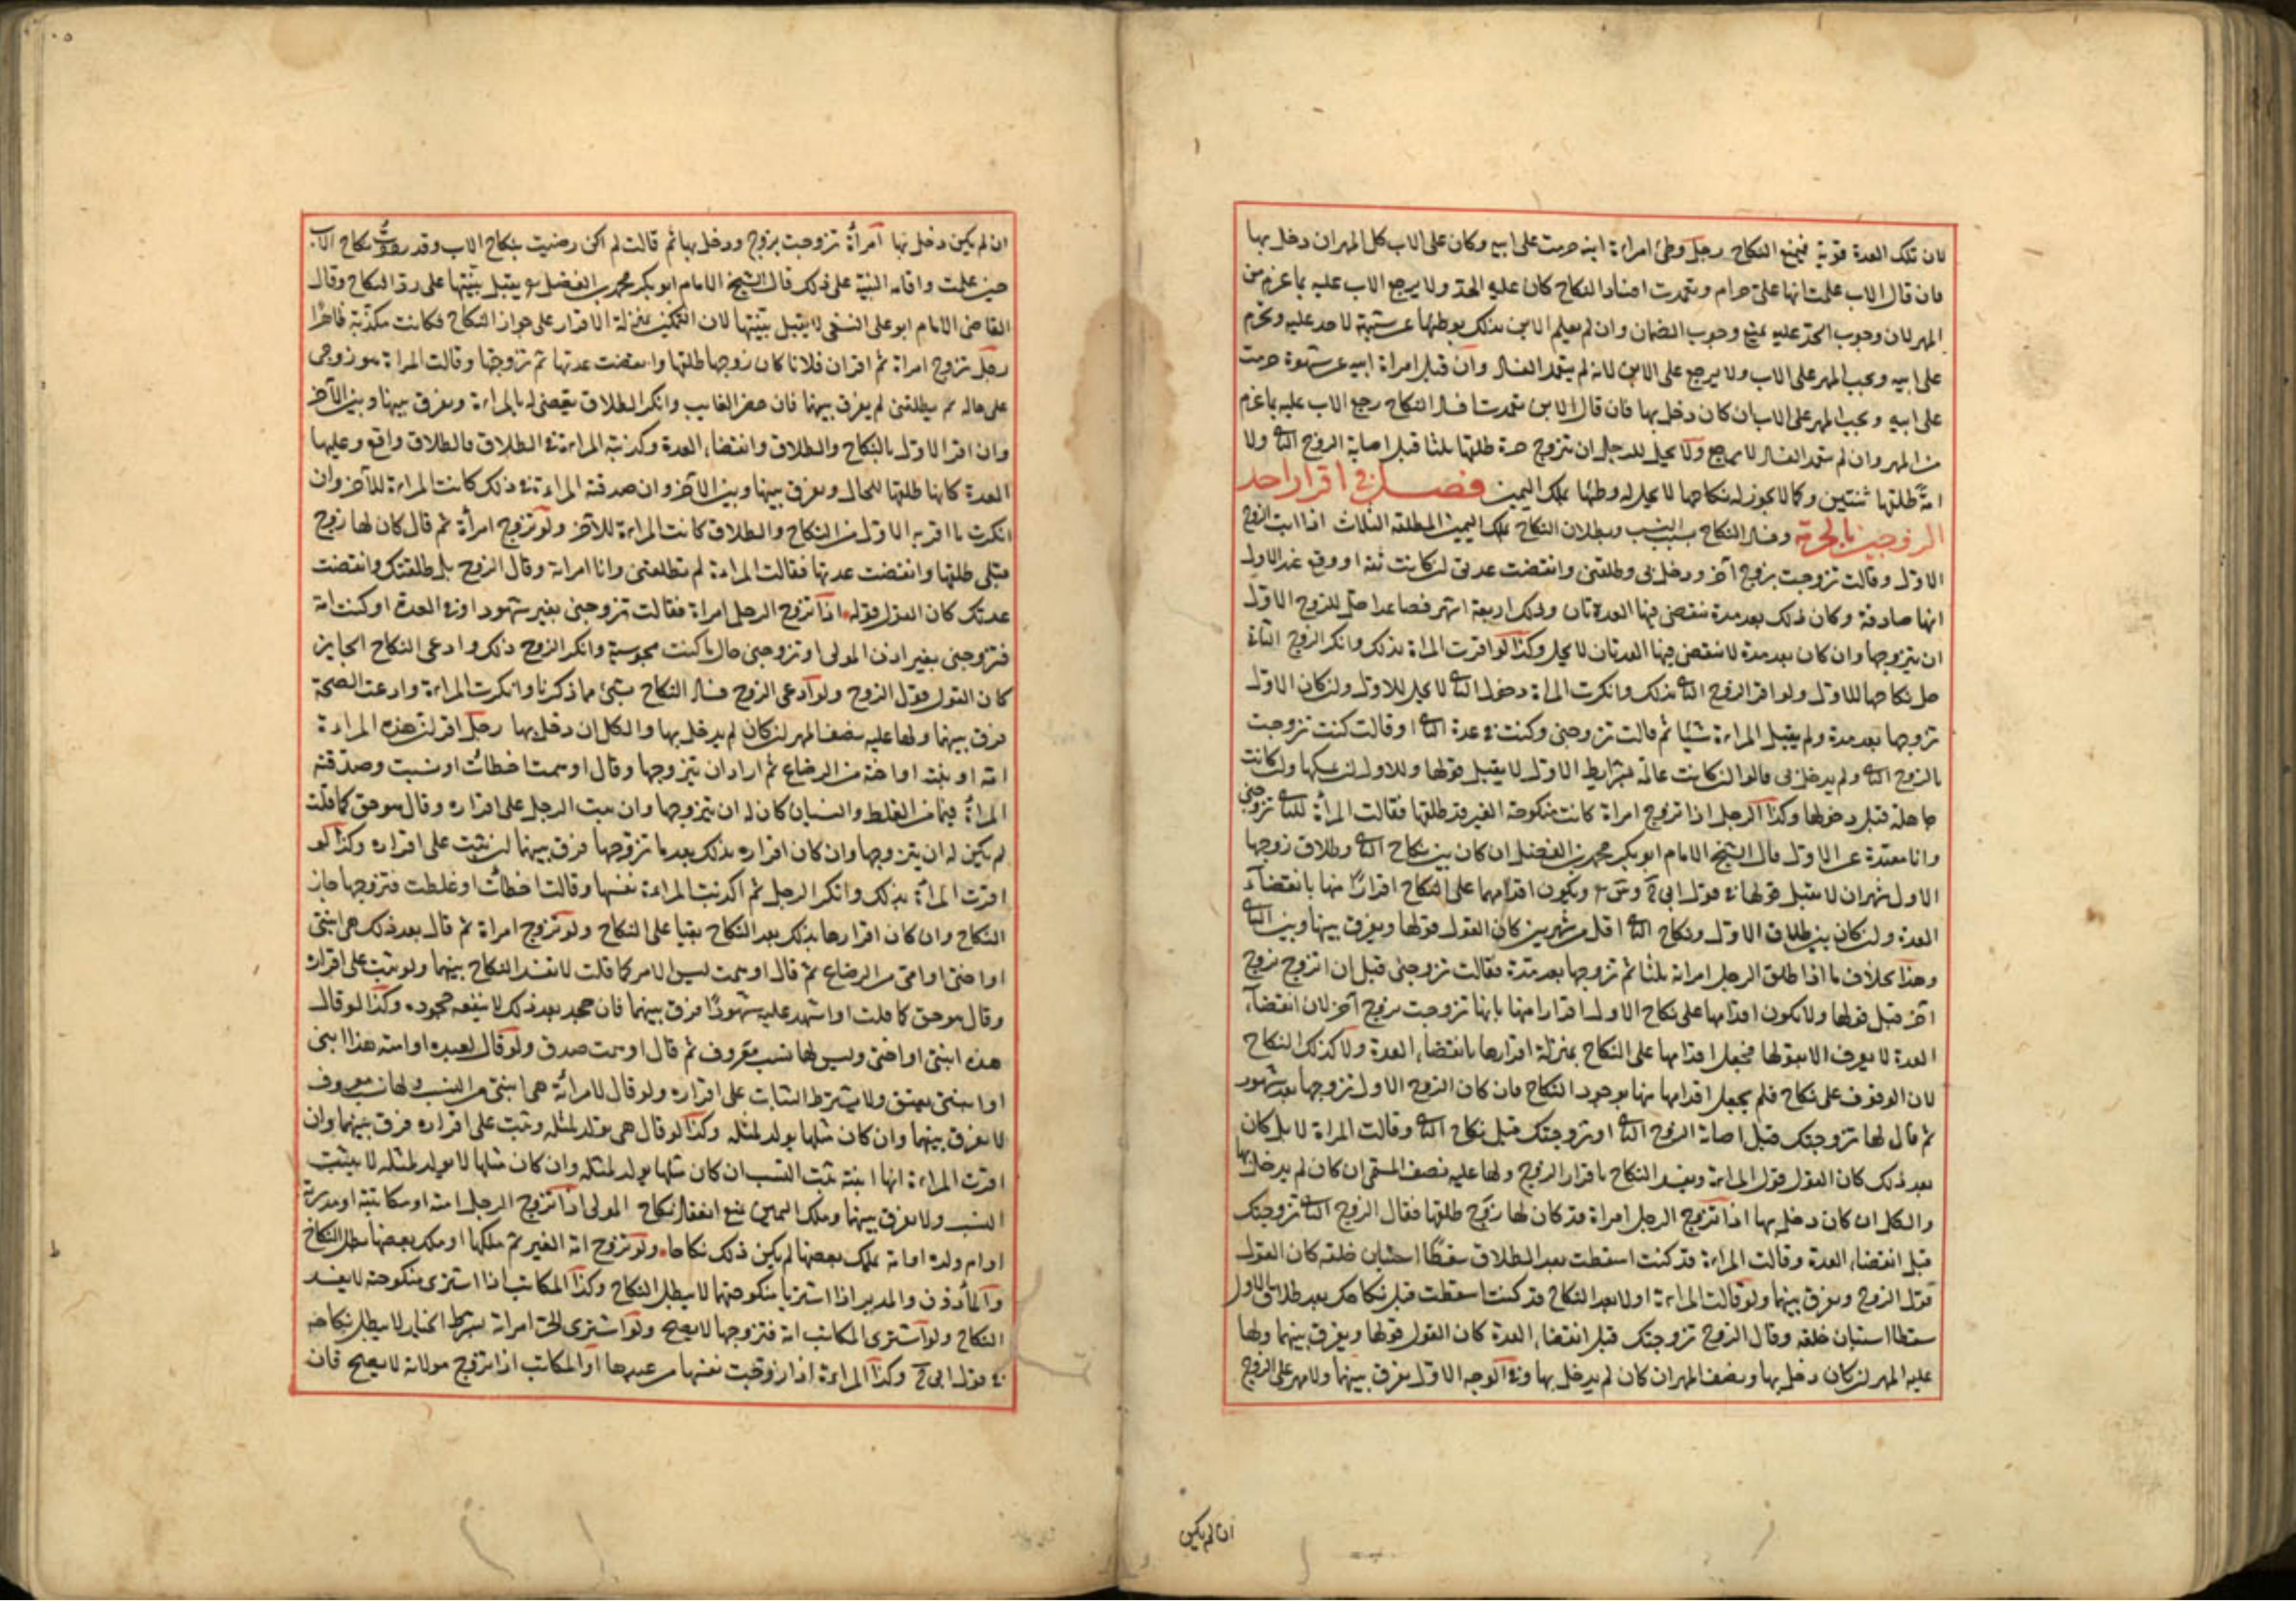 لان تلك العدة قوية فيمنع النكاح رجل وطئ امراة ابنه حرمت على ابيه وكان على الاب كل المهر ان دخل بها
فان قال الاب علمت انها علي حرام وتعمدت افساد النكاح كان عليه الحد ولا يرجع الاب عليه بما غرم من
المهر لان وجوب الحد عليه يمنع وجوب الضمان وان لم يعلم الابن بذلك بوطئها عن شبهة لا حد عليه وتحرم
على ابيه ويجب المهر على الاب ولا يرجع على الابن لانه لم يتعمد الفساد وان قبل امراة ابيه عن شهوة حرمت
على ابيه ويجب المهر على الاب ان كان دخل بها فان قال الابن تعمدت فساد النكاح رجع الاب عليه بما غرم
من المهر وان لم يتعمد الفساد لا يرجع ولا يحل للرجل ان يتزوج حرة طلقها ثلثا قبل اصابة الزوج الثاني ولا
امة طلقها ثنتين وكما لا يجوز له نكاحها لا يحل له وطئها بملك اليمين فصل في اقرار احد
الزوجين بالحرمة وفساد النكاح بسبب النسب وبطلان النكاح بملك اليمين المطلقة الثلاث اذا اتت الزوج
الاول وقالت تزوجت بزوج آخر ودخل بي وطلقني وانقضت عدتي ان كانت ثقة او وقع عند الاول
انها صادقة وكان ذلك بعد مدة تنقضي فيها العدتان وذلك اربعة اشهر فصاعدا حل للزوج الاول
ان يتزوجها وان كان بعد مدة لا تنقضي فيها العدتان لا يحل وكذا لو اقرت المراة بذلك وانكر الزوج الثاني
حل نكاحها للاول ولو اقر الزوج الثاني بذلك وانكرت المراة دخول الثاني لا يحل للاول وان كان الاول
تزوجها بعد مدة ولم يقبل المراة شيئا ثم قالت تزوجني وكنت في عدة الثاني او قالت كنت تزوجت
بالزوج الثاني ولم يدخل بي قالوا ان كانت عالمة بشرايط الاول لا يقبل قولها وللاول ان يمسكها وان كانت
جاهلة قبل دخولها وكذا الرجل اذا تزوج امراة كانت منكوحة الغير قد طلقها فقالت المرأة للثاني تزوجني
وانا معتدة عن الاول قال الشيخ الامام ابو بكر محمد بن الفضل ان كان بين نكاح الثاني وطلاق زوجها
الاول شهران لا يقبل قولها في قول ابي ح وس ويكون اقدامها على النكاح اقرارًا منها بانقضآء
العدة وان كان بين طلاق الاول ونكاح الثاني اقل من شهرين كان القول قولها ويفرق بينها وبين الثاني
وهذا بخلاف ما اذا طلق الرجل امراته ثلثا ثم تزوجها بعد مدة فقالت تزوجني قبل ان اتزوج بزوج
آخر قبل قولها ولا يكون اقدامها على نكاح الاول اقرارا منها بانها تزوجت بزوج آخر لان انقضآء
العدة لا يعرف الا بقولها فجعل اقدامها على النكاح بمنزلة اقرارها بانقضاء العدة ولا كذلك النكاح
لان الوقوف على نكاح فلم يجعل اقدامها منها بوجود النكاح فان كان الزوج الاول تزوجها بعد شهور
ثم قال لها تزوجتك قبل اصابة الزوج الثاني او تزوجتك قبل نكاح الثاني وقالت المراة لا بل كان
بعد ذلك كان القول قول المراة ويفسد النكاح باقرار الزوج ولها عليه نصف المسمى ان كان لم يدخل بها
والكل ان كان دخل بها اذا تزوج الرجل امراة قد كان لها زوج طلقها فقال الزوج الثاني تزوجتك
قبل انقضاء العدة وقالت المراة قد كنت اسقطت بعد الطلاق سقطًا استبان خلقه كان القول
قول الزوج ويفرق بينهما ولو قالت المراة اولا بعد النكاح قد كنت اسقطت قبل نكاحك بعد طلاق الاول
سقطا استبان خلقه وقال الزوج تزوجتك قبل انقضاء العدة كان القول قولها ويفرق بينهما ولها
عليه المهر ان كان دخل بها ونصف المهر ان كان لم يدخل بها وفي الوجه الاول يفرق بينهما ولا مهر على الزوج
ان لم يكن
ان لم يكن دخل بها امرأة تزوجت بزوج ودخل بها ثم قالت لم اكن رضيت بنكاح الاب وقد رددت نكاح الاب
حين علمت واقامت البينة على ذلك قال الشيخ الامام ابو بكر محمد بن الفضل يقبل بينتها على رد النكاح وقال
القاضي الامام ابو علي النسفي لا يقبل بينتها لان التمكين بمنزلة الاقرار على جواز النكاح فكانت مكذبة ظاهرا
رجل تزوج امراة ثم اقر ان فلانا كان زوجها طلقها وانقضت عدتها ثم تزوجتها وقالت المراة هو زوجي
على حاله لم يطلقني لم يفرق بينهما فان حضر الغايب وانكر الطلاق يقضى له بالمراة ويفرق بينها وبين الآخر
وان اقر الاول بالنكاح والطلاق وانقضاء العدة وكذبته المراة في الطلاق فالطلاق واقع وعليها
العدة كانها طلقها للحال ويفرق بينها وبين الآخر وان صدقته المراة في ذلك كانت المراة للآخر وان
انكرت ما اقر به الاول من النكاح والطلاق كانت المراة للآخر ولو تزوج امرأة ثم قال كان لها زوج
قبلي طلقها وانقضت عدتها فقالت المراة لم يطلقني وانا امراته وقال الزوج بل طلقتك وانقضت
عدتك كان القول قوله اذا تزوج الرجل امراة فقالت تزوجني بغير شهود او في العدة او كنت امة
فتزوجني بغير اذن المولى او تزوجني حال ما كنت مجوسية وانكر الزوج ذلك وادعى النكاح الجايز
كان القول قول الزوج ولو ادعى الزوج فساد النكاح بشئ مما ذكرنا وانكرت المراة وادعت الصحة
فرق بينهما ولها عليه نصف المهر ان كان لم يدخل بها والكل ان دخل بها رجل اقر ان هذه المراة
امه او بنته او اخته من الرضاع ثم اراد ان يتزوجها وقال اوهمت اخطأت او نسيت وصدقته
المرأة فيما من الغلط والنسيان كان له ان يتزوجها وان ثبت الرجل على اقراره وقال هو حق كما قلت
لم يكن له ان يتزوجها وان كان اقراره بذلك بعد ما تزوجها فرق بينهما ان ثبت على اقراره وكذا لو
اقرت المرأة بذلك وانكر الرجل ثم اكذبت المراة نفسها وقالت اخطأت او غلطت فتزوجها جاز
النكاح وان كان اقرارها بذلك بعد النكاح بقيا على النكاح ولو تزوج امراة ثم قال بعد ذلك هي ابنتي
او اختي او امي من الرضاع ثم قال اوهمت ليس الامر كما قلت لا يفسد النكاح بينهما ولو ثبت على اقراره
وقال هو حق كما قلت او اشهد عليه شهودًا فرق بينهما فان جحد بعد ذلك لا ينفعه جحوده وكذا لو قال
هذه ابنتي او اختي وليس لها نسب معروف ثم قال اوهمت صدق ولو قال لعبده او امته هذا ابني
او ابنتي يعتق ولا يشترط الثبات على اقراره ولو قال لامرأته هي ابنتي من النسب ولها نسب معروف
لا يفرق بينهما وان كان مثلها يولد لمثله وكذا لو قال هي تولد لمثله وثبت على اقراره فرق بينهما وان
اقرت المراة انها ابنته ثبت النسب ان كان مثلها يولد لمثله وان كان مثلها لا يولد لمثله لا يثبت
النسب ولا يفرق بينهما وملك اليمين يمنع انعقاد نكاح المولى اذا تزوج الرجل امته او مكاتبته او مدبرته
او ام ولده او امة يملك بعضها لم يكن ذلك نكاحا ولو تزوج امة الغير ثم ملكها او ملك بعضها بطل النكاح
والمأذون والمدبر اذا اشتريا منكوحتهما لا يبطل النكاح وكذا المكاتب اذا اشترى منكوحته لا يفسد
النكاح ولو اشترى المكاتب امة فتزوجها لا يصح ولو اشترى الحر امراته بشرط الخيار لا يبطل نكاحه
في قول ابي ح وكذا المراة اذا زوجت نفسها من عبدها او المكاتب اذا تزوج مولاته لا يصح فان